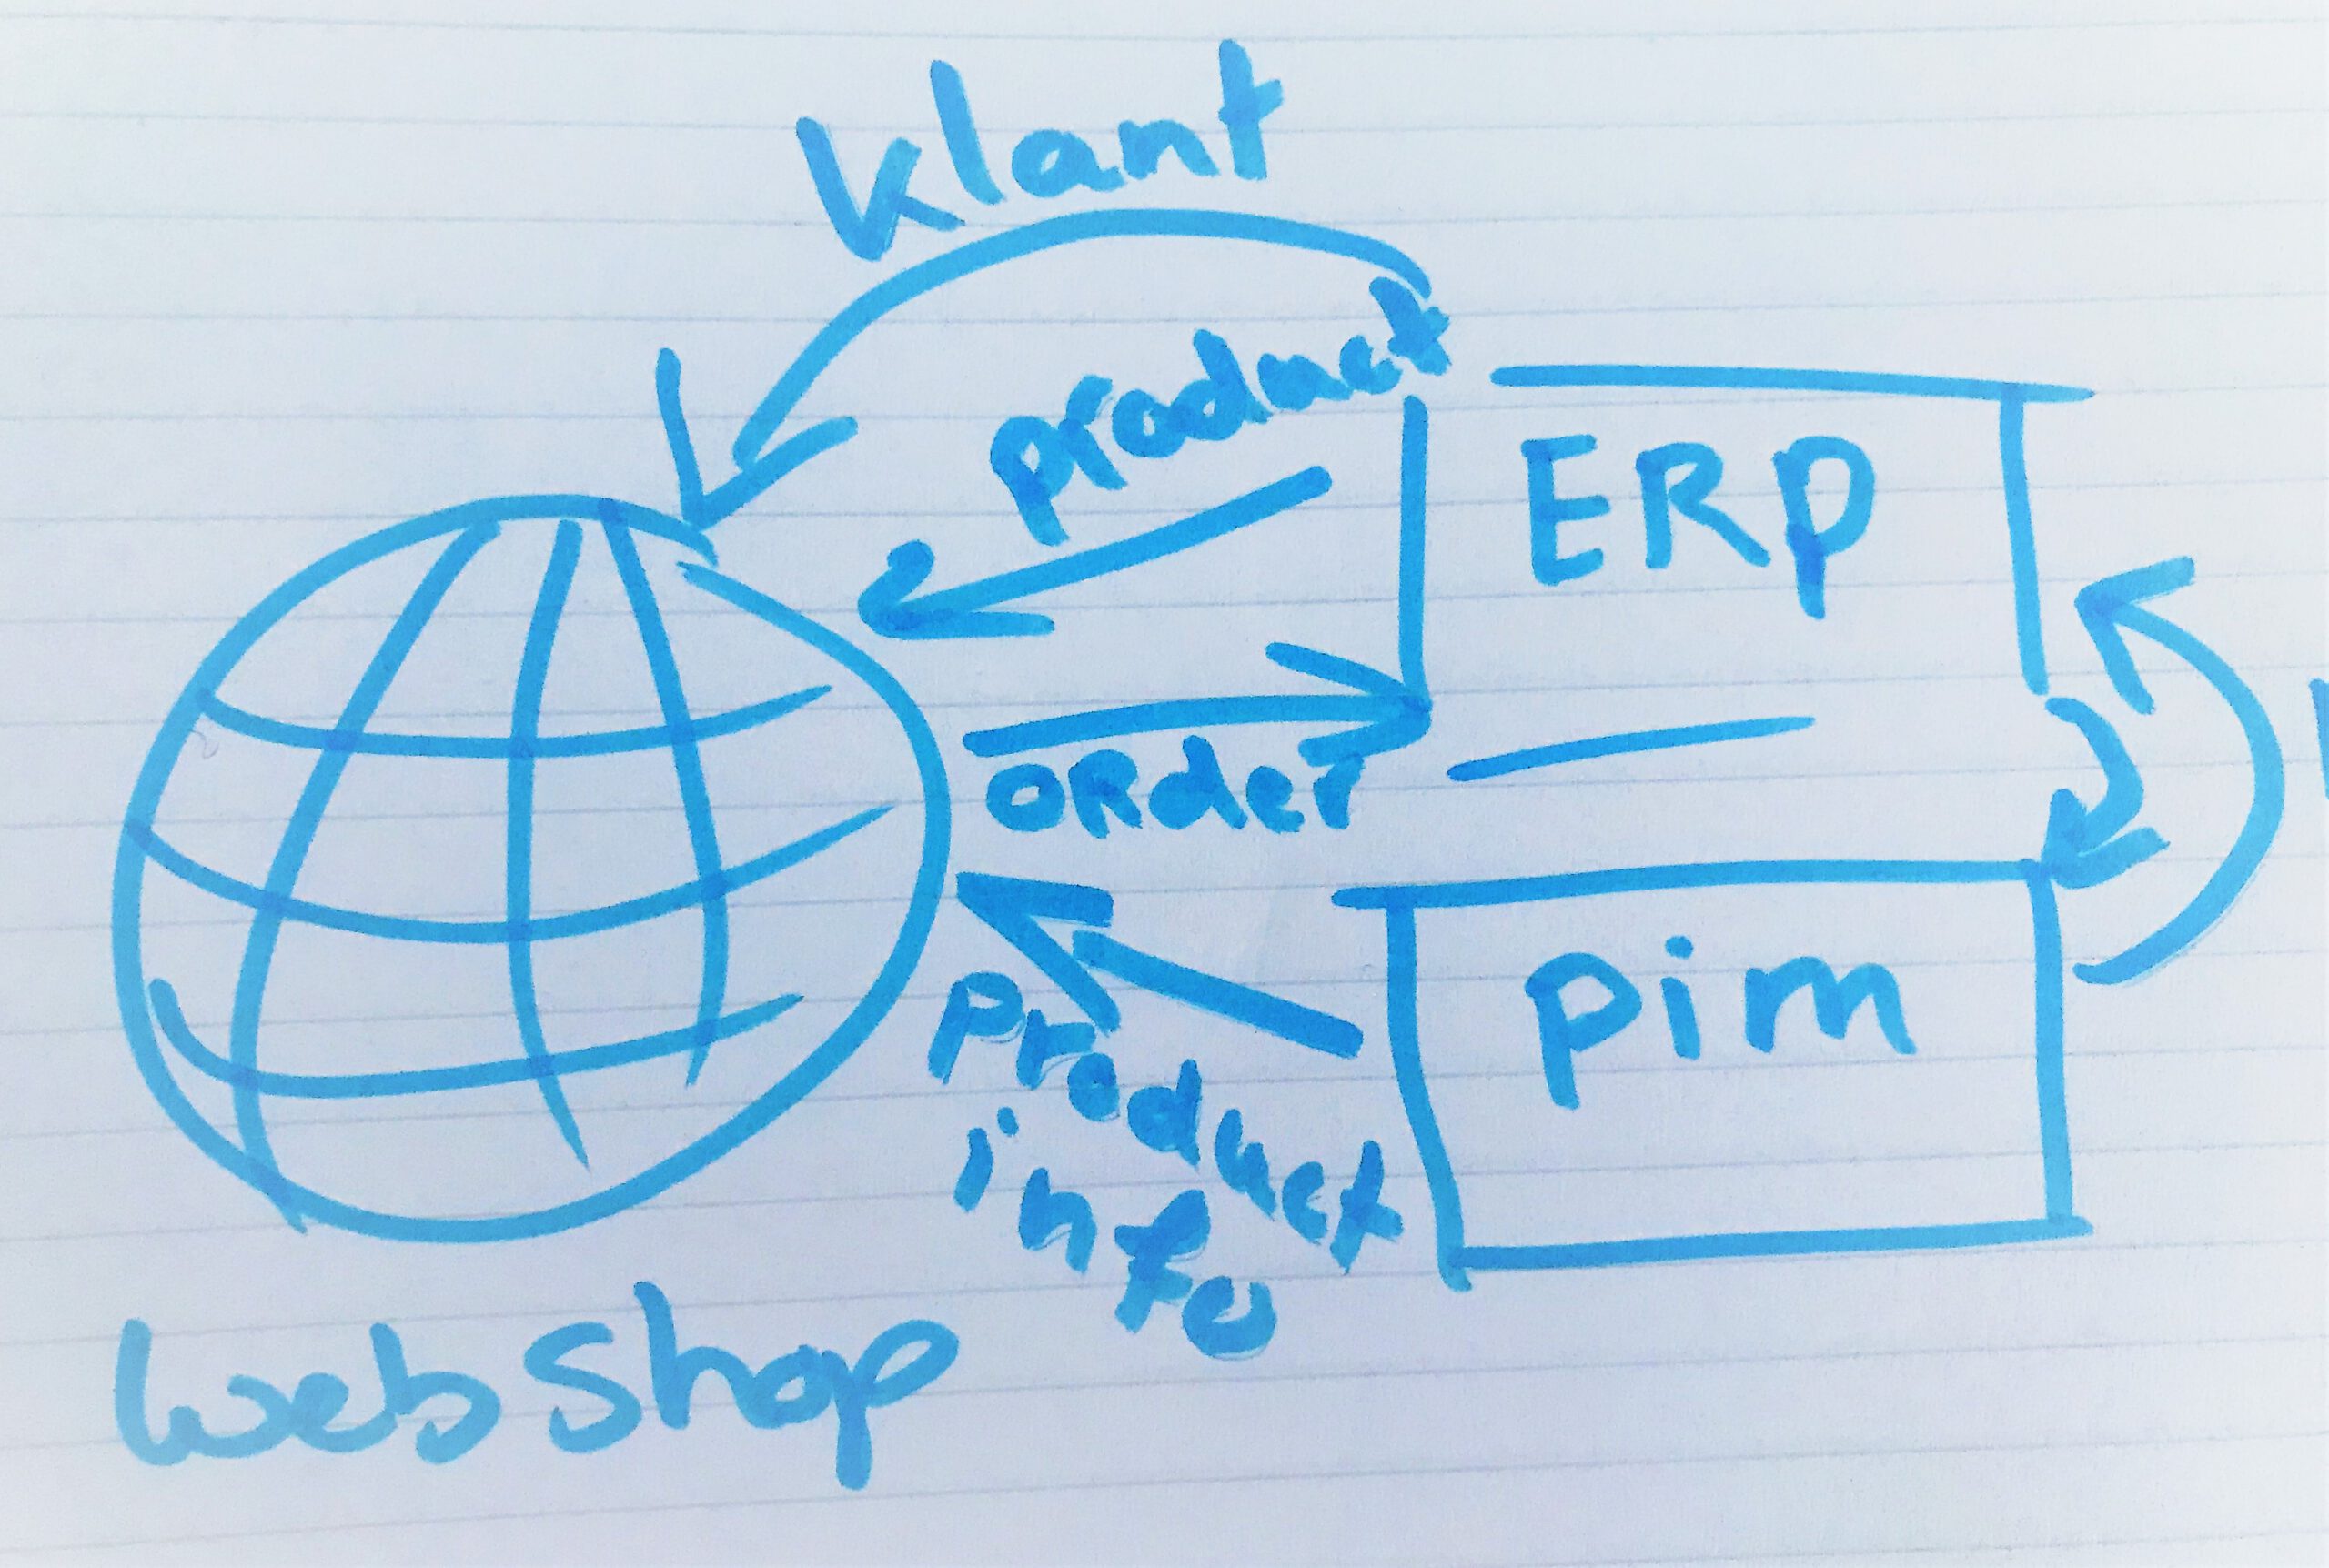 klant
product
ERP
ORder
pim
product
info
webshop